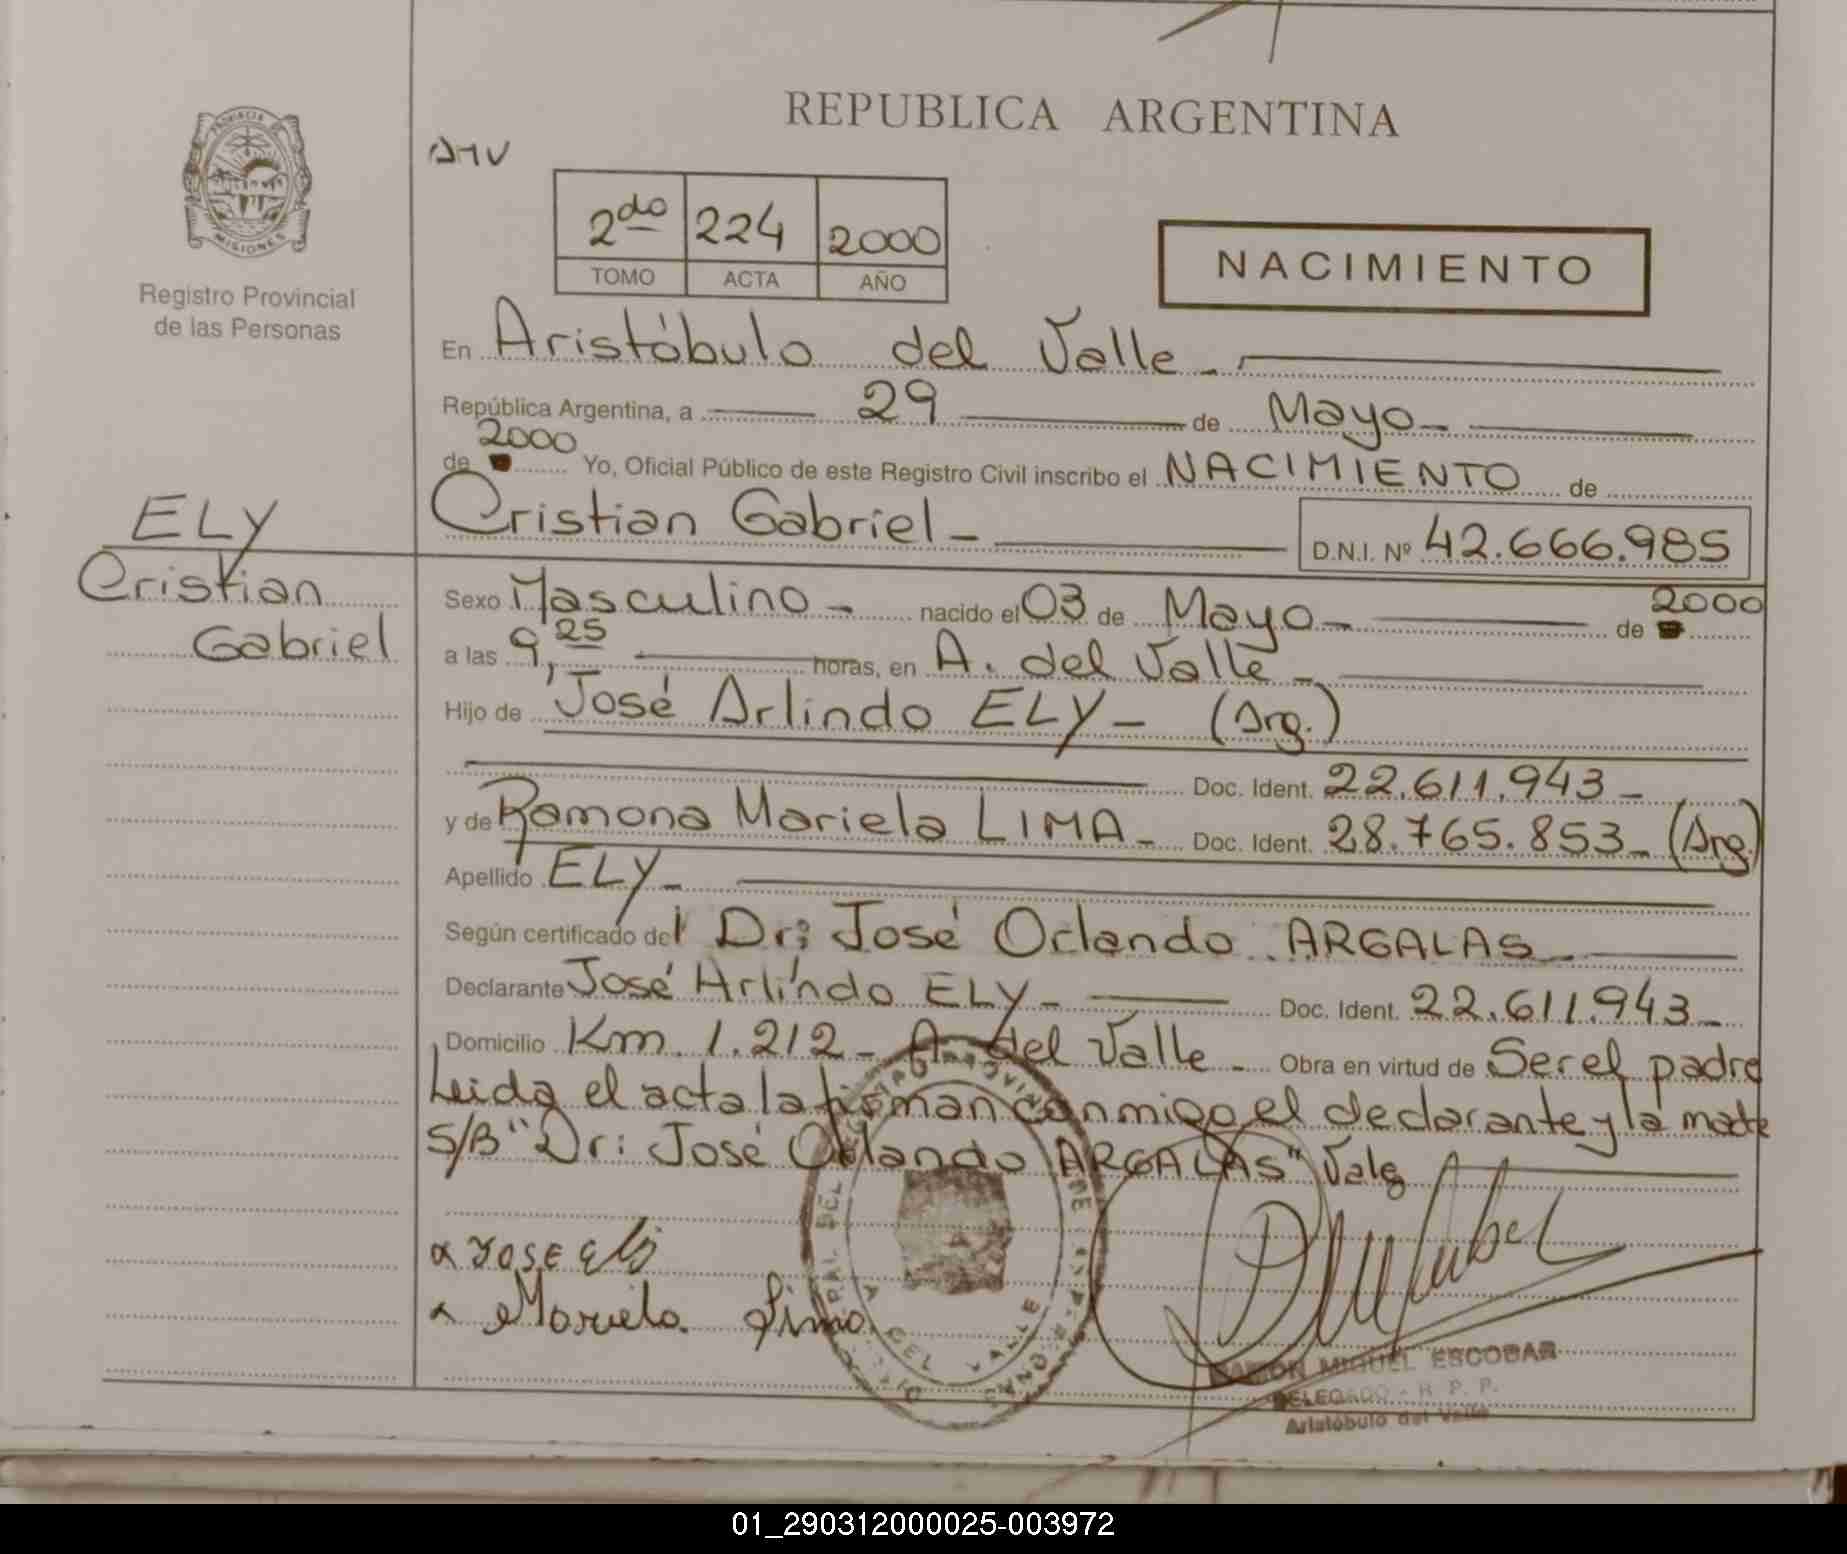 REPUBLICA ARGENTINA
PROVINCIA DE
MISIONES
Registro Provincial
de las Personas
2do 224 2000
TOMO ACTA AÑO
NACIMIENTO
En Aristóbulo del Valle -
República Argentina, a 29 de Mayo -
2000
de Yo, Oficial Público de este Registro Civil inscribo el NACIMIENTO de
Cristian Gabriel - D.N.I. Nº 42.666.985
ELY
Cristian
Gabriel
Sexo Masculino - nacido el 03 de Mayo - de 2000
a las 9,25 horas, en A. del Valle -
Hijo de José Arlindo ELY - (Arg.)
Doc. Ident. 22.611.943 -
y de Ramona Mariela LIMA - Doc. Ident. 28.765.853 - (Arg.)
Apellido ELY -
Según certificado del Dr: José Orlando ARGALAS
Declarante José Arlindo ELY - Doc. Ident. 22.611.943 -
Domicilio Km. 1.212 - A. del Valle - Obra en virtud de Ser el padre
Leida el acta la firman conmigo el declarante y la madre
S/B "Dr: José Orlando ARGALAS" Vale
José Eli
Mariela Lima
RAMON MIGUEL ESCOBAR
DELEGADO - R. P. P.
Aristóbulo del Valle
01_290312000025-003972